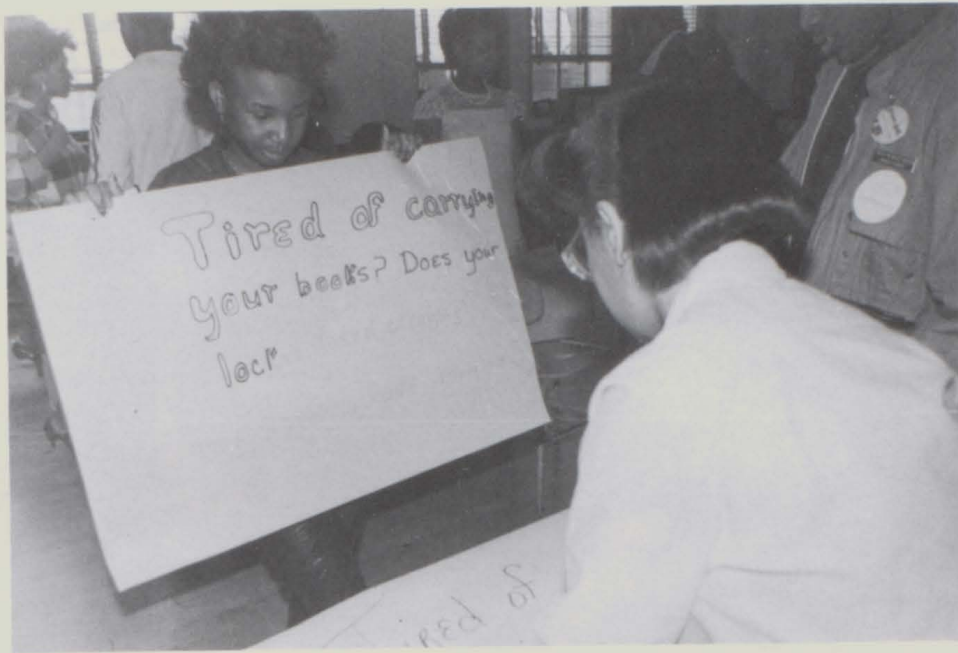 Tired of carrying
your books? Does your
lock
Tired of